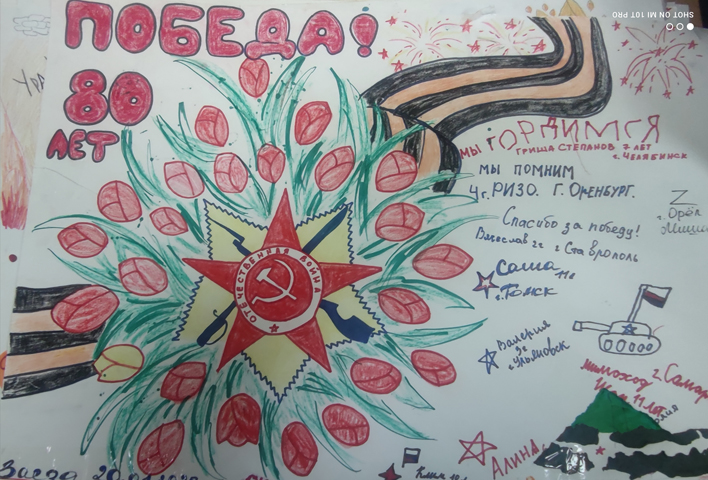 ПОБЕДА!
80
ЛЕТ
SHOT ON MI 10T PRO
МЫ ГОРДИМСЯ
ГРИША СТЕПАНОВ 7 ЛЕТ
г. ЧЕЛЯБИНСК
МЫ ПОМНИМ
4 г. РИЗО. Г. ОРЕНБУРГ.
Спасибо за победу!
Вячеслав 2г г Ставрополь
Z
г. Орёл
Саша 11л
г. Томск
Валерия
9г
г. Ульяновск
ОТЕЧЕСТВЕННАЯ ВОЙНА
мимоход г. Самар
11 лет
АЛИНА,
Клим